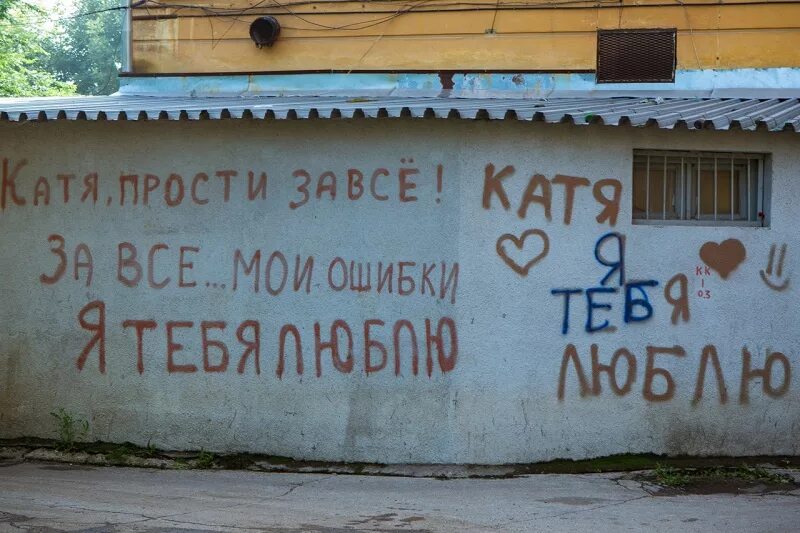 КАТЯ, ПРОСТИ ЗА ВСЁ!
ЗА ВСЕ... МОИ ОШИБКИ
Я ТЕБЯ ЛЮБЛЮ
КАТЯ
Я
ТЕБЯ
ЛЮБЛЮ
КК
10.3